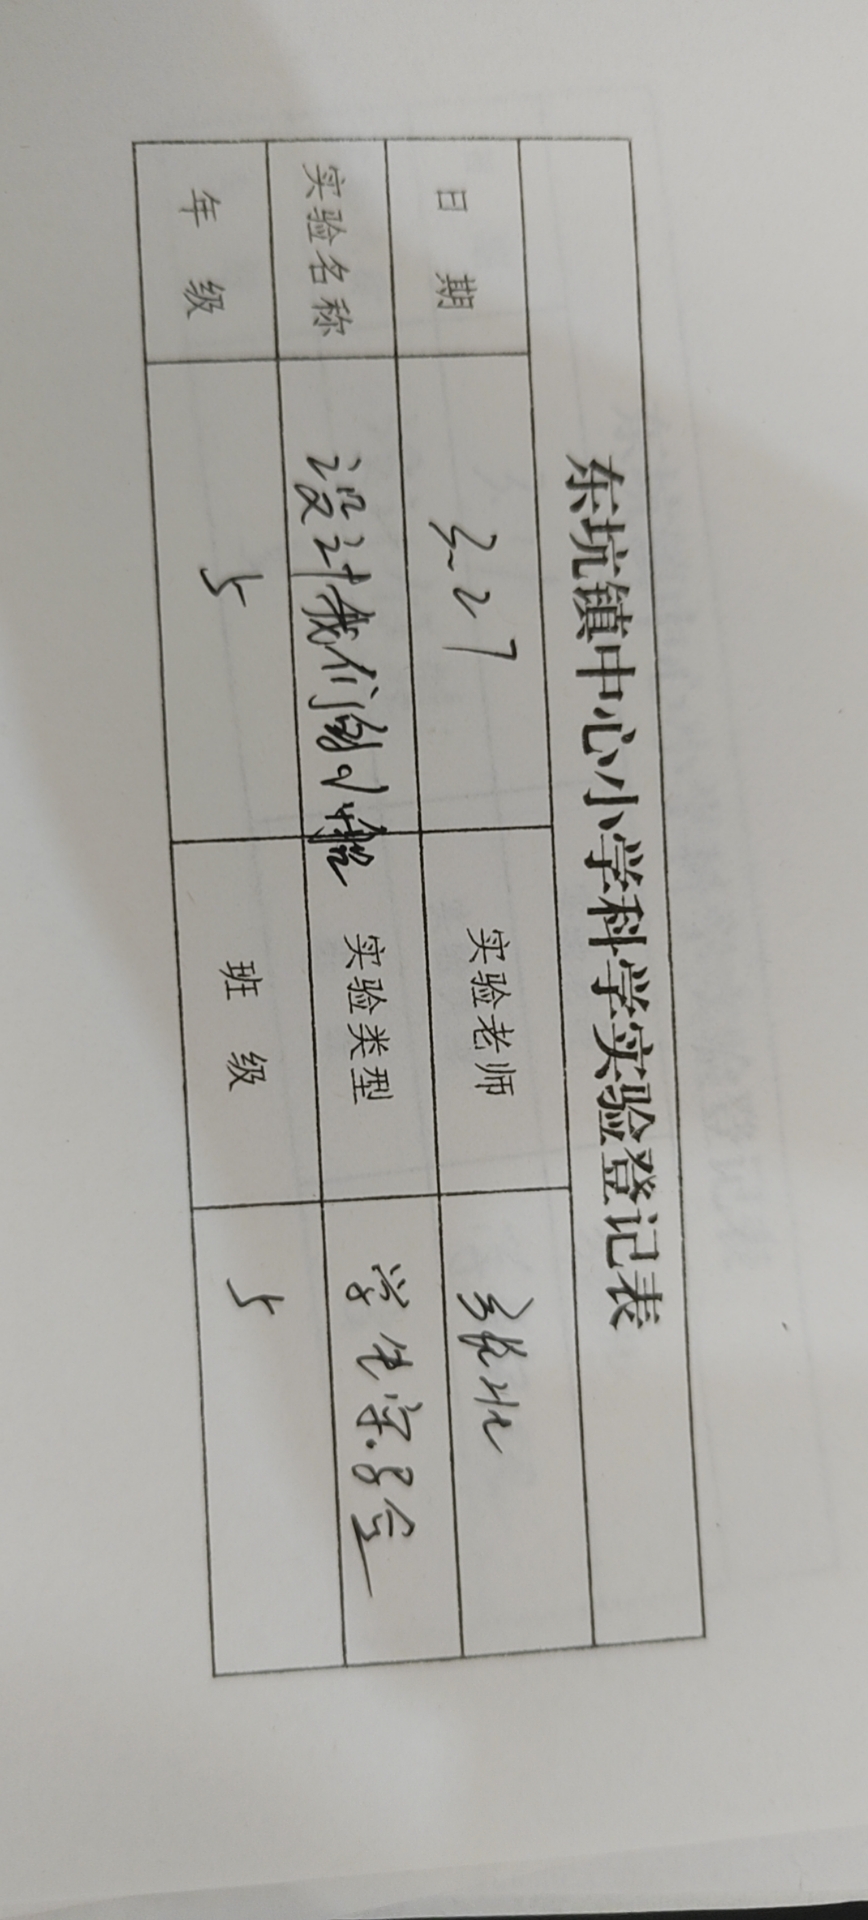 东坑镇中心小学科学实验登记表
日 期 3.27 实验老师
实验名称 设计我们的小船 实验类型 学生实
年 级 5 班 级 5